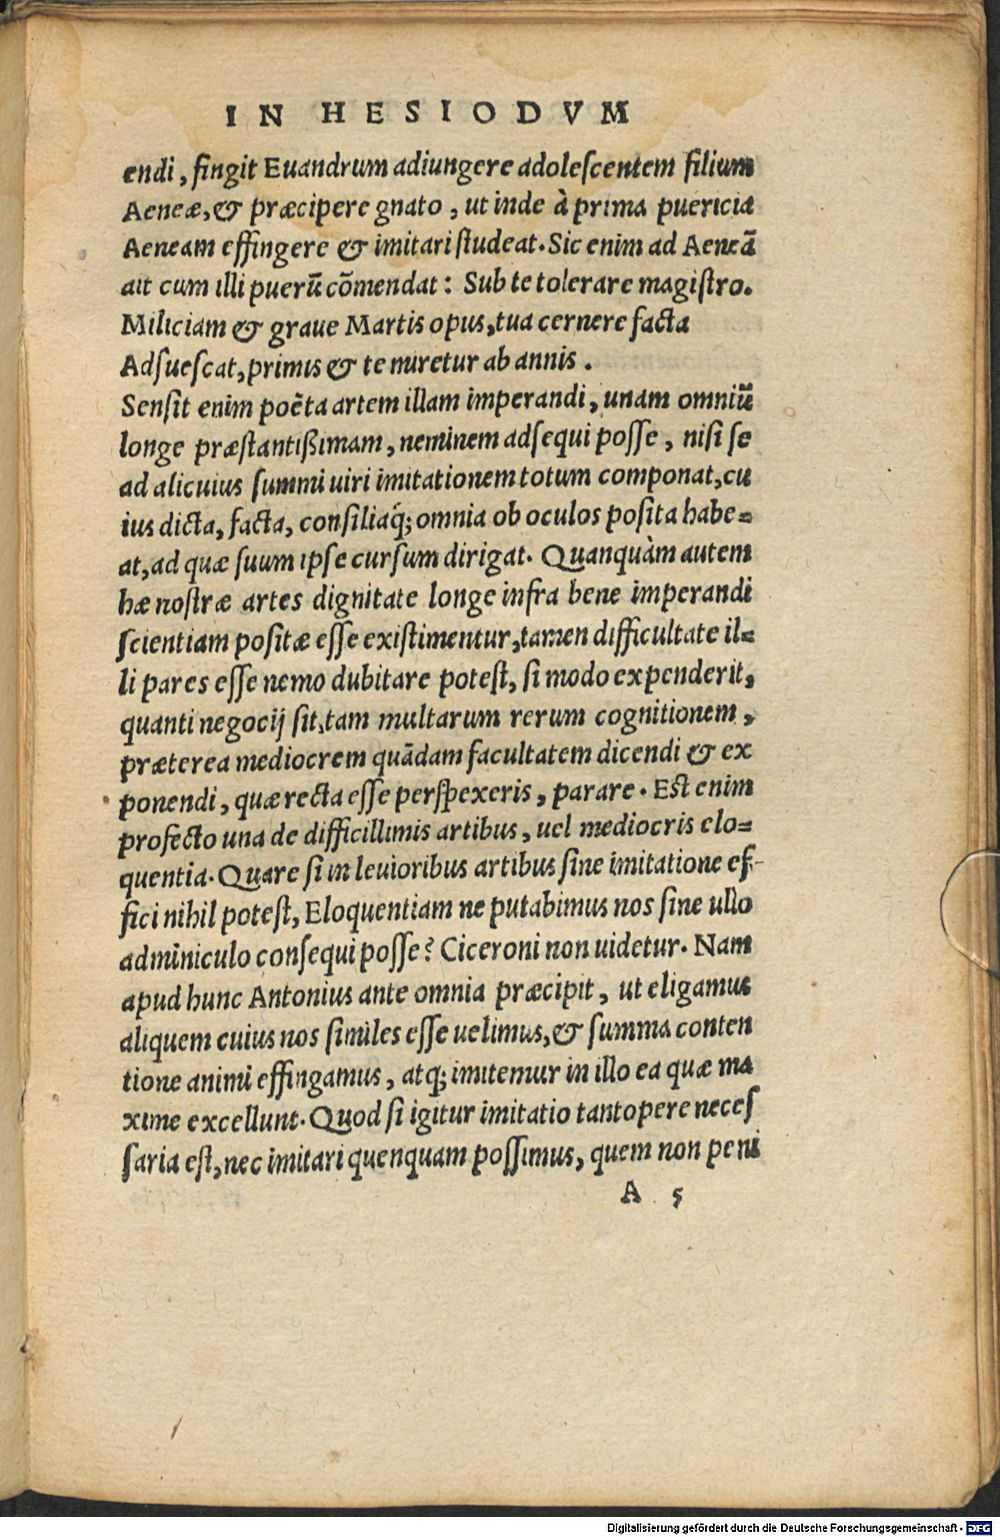 IN HESIODVM
endi, fingit Euandrum adiungere adolescentem filium
Aeneæ, & præcipere gnato, ut inde à prima puericia
Aeneam effingere & imitari studeat. Sic enim ad Aeneã
ait cum illi puerũ cõmendat: Sub te tolerare magistro.
Miliciam & graue Martis opus, tua cernere facta
Adsuescat, primis & te miretur ab annis.
Sensit enim poëta artem illam imperandi, unam omniũ
longe præstantißimam, neminem adsequi posse, nisi se
ad alicuius summi uiri imitationem totum componat, cu
ius dicta, facta, consiliaq́; omnia ob oculos posita habe=
at, ad quæ suum ipse cursum dirigat. Quanquàm autem
hæ nostræ artes dignitate longe infra bene imperandi
scientiam positæ esse existimentur, tamen difficultate il=
li pares esse nemo dubitare potest, si modo expenderit,
quanti negocij sit, tam multarum rerum cognitionem,
præterea mediocrem quãdam facultatem dicendi & ex
ponendi, quæ recta esse perspexeris, parare. Est enim
profecto una de difficillimis artibus, uel mediocris elo=
quentia. Quare si in leuioribus artibus sine imitatione ef-
fici nihil potest, Eloquentiam ne putabimus nos sine ullo
adminiculo consequi posse? Ciceroni non uidetur. Nam
apud hunc Antonius ante omnia præcipit, ut eligamus
aliquem cuius nos similes esse uelimus, & summa conten
tione animi effingamus, atq; imitemur in illo ea quæ ma
xime excellunt. Quod si igitur imitatio tantopere neces
saria est, nec imitari quenquam possimus, quem non peni
A 5
Digitalisierung gefördert durch die Deutsche Forschungsgemeinschaft - DFG